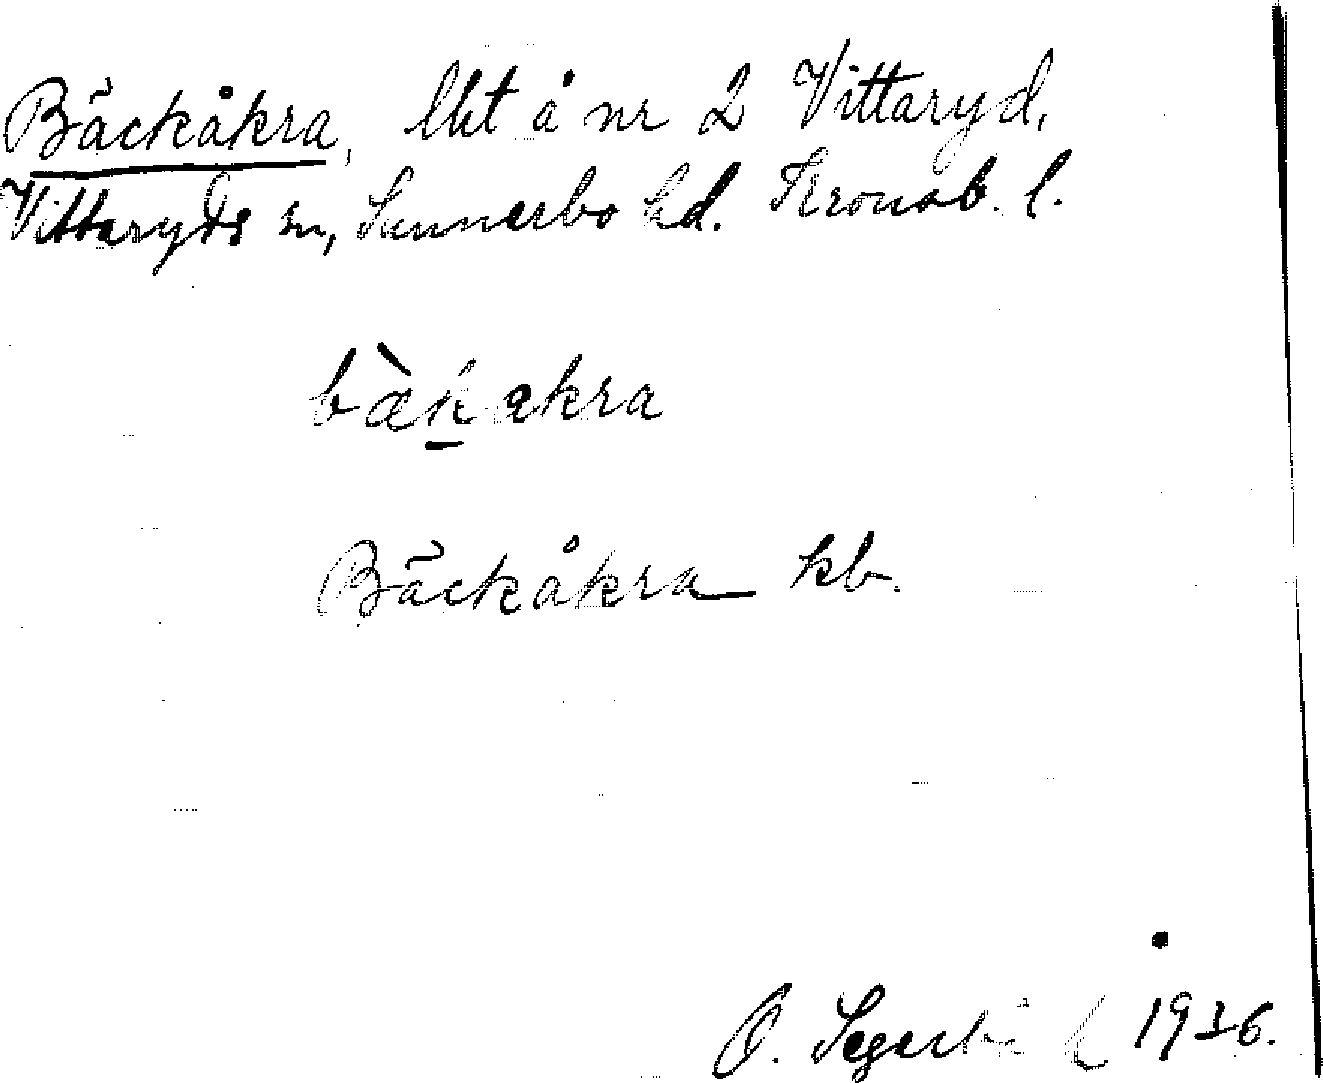 Bäckåkra, lht å nr 2 Vittaryd,
Vittaryds sn, Sunnerbo hd. Kronob. l.
bæ̀k akra
Bäckåkra kb.
O.